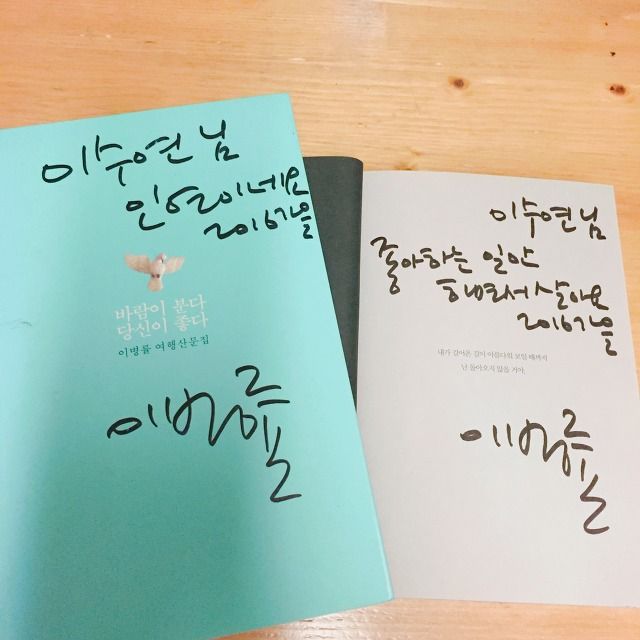 이수연 님
인연이네요
2016가을
바람이 분다
당신이 좋다
이병률 여행산문집
이병률
이수연님
좋아하는 일만
하면서 살아요
2016가을
내가 걸어온 길이 아름다워 보일 때까지
난 돌아오지 않을 거야.
이병률